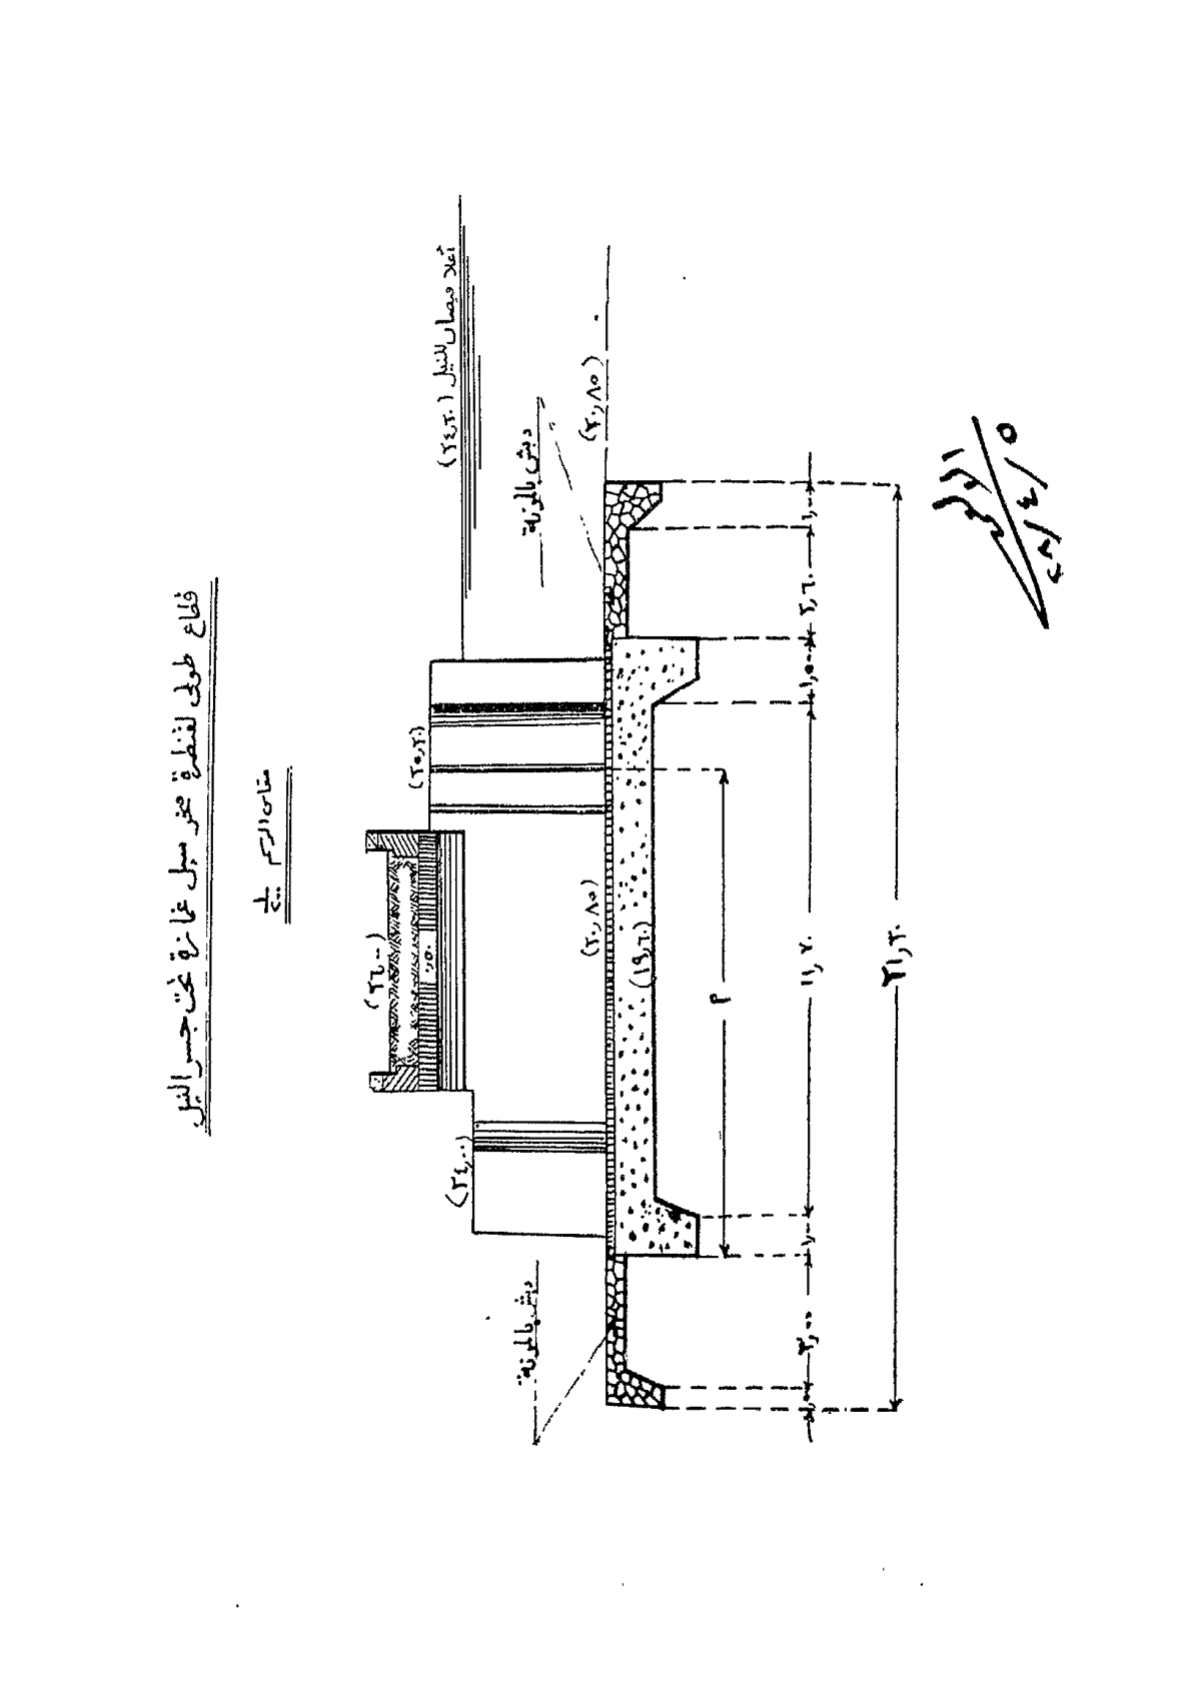 قطاع طولى لقنطرة مخر سيل غمازة تحت جسر النيل
مقياس الرسم
(٢٦,٠٠)
,٥٠
(٢٤,٠٠)
(٢٥,٢٠)
فيضان النيل (٢٤,٢٠)
دبش بالمونة
دبش بالمونة
(٢٠,٨٥)
(٢٠,٨٥)
(١٩,٦٠)
م
٣,٠٠
١,٠٠
١١,٧٠
١,٥٠
٢,٦٠
١,٠٠
٢١,٣٠